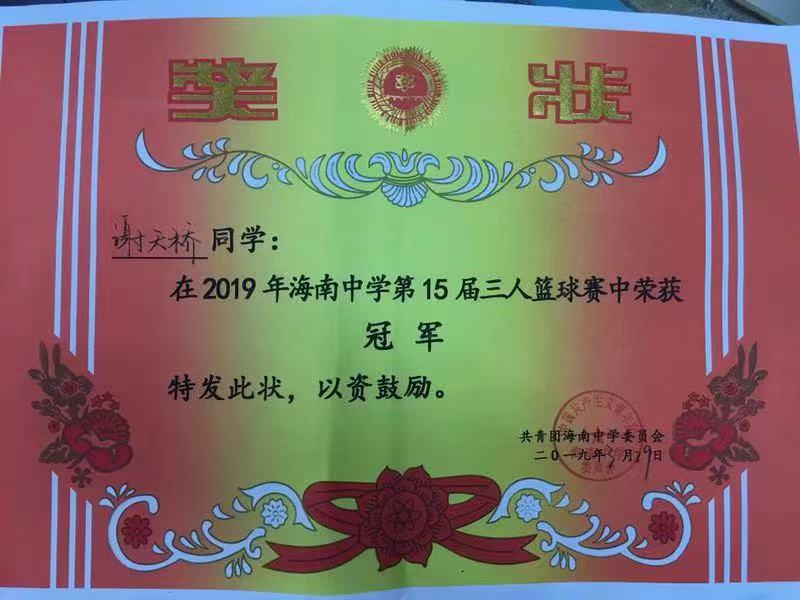 奖状
谢天桥同学：
在2019年海南中学第15届三人篮球赛中荣获
冠军
特发此状，以资鼓励。
共青团海南中学委员会
二〇一九年3月29日